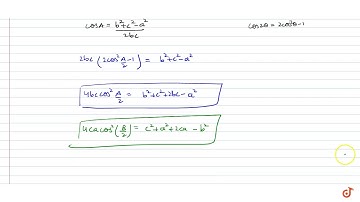 cosA = b²+c²-a² / 2bc
cos2θ = 2cos²θ-1
2bc (2cos² A/2 -1) = b²+c²-a²
4bc cos² A/2 = b²+c²+2bc-a²
4ca cos² (B/2) = c²+a²+2ca -b²